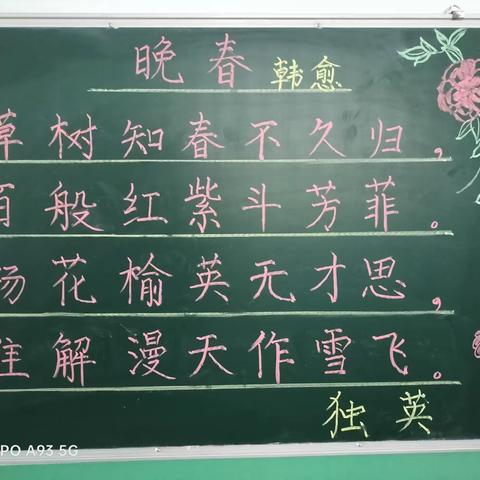 晚春 韩愈
草树知春不久归，
百般红紫斗芳菲。
杨花榆英无才思，
解漫天作雪飞。
独英
PO A93 5G